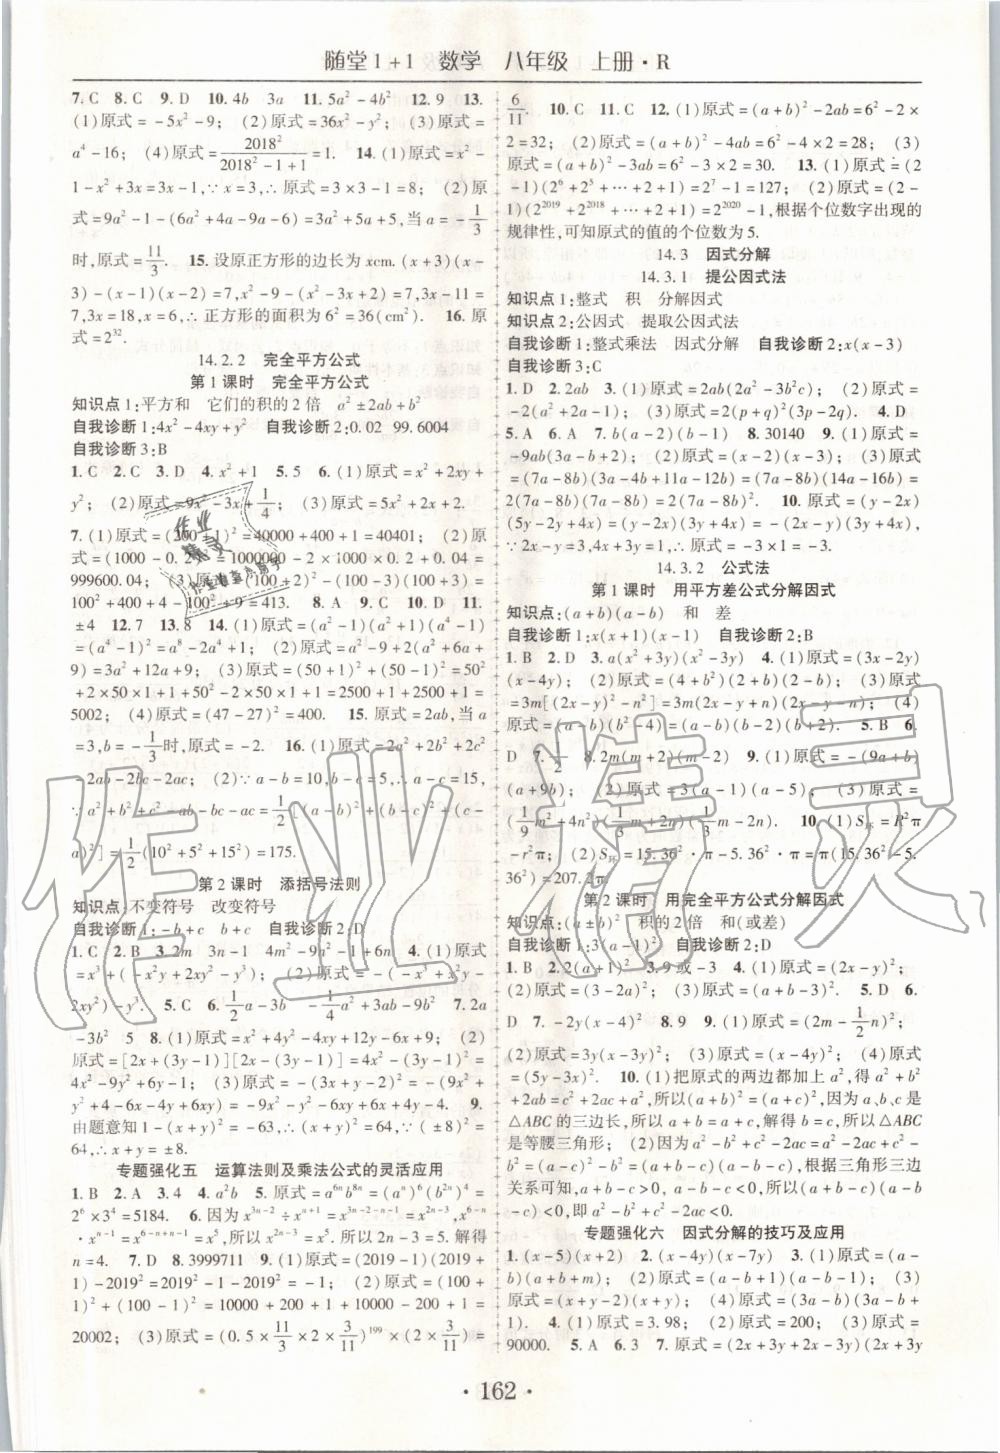 随堂1+1 数学 八年级 上册·R
7. C 8. C 9. D 10. 4b 3a 11. 5a²-4b² 12. 9 13.
(1)原式=-5x²-9; (2)原式=36x²-y²; (3)原式=
a⁴-16; (4)原式=2018²/(2018²-1+1)=1. 14. (1)原式=x²-
1-x²+3x=3x-1,∵x=3,∴原式=3×3-1=8; (2)原
式=9a²-1-(6a²+4a-9a-6)=3a²+5a+5,当a=-1/3
时,原式=11/3. 15. 设原正方形的边长为xcm. (x+3)(x-
3)-(x-1)(x-2)=7,x²-9-(x²-3x+2)=7,3x-11=
7,3x=18,x=6,∴正方形的面积为6²=36(cm²). 16. 原
式=2³².
14.2.2 完全平方公式
第1课时 完全平方公式
知识点1:平方和 它们的积的2倍 a²±2ab+b²
自我诊断1:4x²-4xy+y² 自我诊断2:0.02 99.6004
自我诊断3:B
1. C 2. C 3. D 4. x²+1 5. 5 6. (1)原式=x²+2xy+
y²; (2)原式=9x²-3x+1/4; (3)原式=5x²+2x+2.
7. (1)原式=(200+1)²=40000+400+1=40401; (2)原式
=(1000-0.2)²=1000000-2×1000×0.2+0.04=
999600.04; (3)原式=(100+2)(100-2)-(100-3)²=
100²-4-100²+600-9=413. 8. A 9. C 10. D 11.
±4 12. 7 13. 8 14. (1)原式=(a²-1)(a²+1)(a⁴-1)=
(a⁴-1)²=a⁸-2a⁴+1; (2)原式=a²-9+2(a²+6a+
9)=3a²+12a+9; (3)原式=(50+1)²+(50-1)²=50²
+2×50×1+1+50²-2×50×1+1=2500+1+2500+1=
5002; (4)原式=(47-27)²=400. 15. 原式=2ab,当a
=3,b=-1/3时,原式=-2. 16. (1)原式=2a²+2b²+2c²
-2ab-2bc-2ac; (2)∵a-b=10,b-c=5,∴a-c=15.
∵a²+b²+c²-ab-bc-ac=1/2[(a-b)²+(b-c)²+(c-
a)²]=1/2(10²+5²+15²)=175.
第2课时 添括号法则
知识点:不变符号 改变符号
自我诊断1:-b+c b+c 自我诊断2:D
1. C 2. B 3. 2m 3n-1 4m²-9n²-1+6n 4. (1)原式
=x³+(-x²y+2xy²-y³); (2)原式=-(-x³+x²y-
2xy²)-y³. 5. C 6. 1/2a-3b -1/4a²+3ab-9b² 7. 2a
-3b² 5 8. (1)原式=x²+4y²-4xy-6x+12y+9; (2)
原式=[2x+(3y-1)][2x-(3y-1)]=4x²-(3y-1)²=
4x²-9y²+6y-1; (3)原式=-(3x+y-2)²=-(9x²+
y²+4-6x-4y+6xy)=-9x²-y²-6xy+6x+4y-4. 9.
由题意知1-(x+y)²=-63,∴(x+y)²=64,∵(±8)²=
64,∴x+y=±8.
专题强化五 运算法则及乘法公式的灵活应用
1. B 2. A 3. 4 4. a²b 5. 原式=a⁶ⁿb⁸ⁿ=(aⁿ)⁶(b²ⁿ)⁴=
2⁶×3⁴=5184. 6. 因为x³ⁿ⁻²÷xⁿ⁺¹=x³ⁿ⁻²⁻ⁿ⁻¹=x²ⁿ⁻³,x⁶⁻ⁿ
·xⁿ⁻¹=x⁶⁻ⁿ⁺ⁿ⁻¹=x⁵,所以2n-3=5. 解得
n=4. 7. D 8. 3999711 9. (1)原式=(2019-1)(2019+
1)-2019²=2019²-1-2019²=-1; (2)原式=(100+
1)²+(100-1)²=10000+200+1+10000-200+1=
20002; (3)原式=(0.5×11/3×2×3/11)¹⁹⁹×(2×3/11)=
6/11. 10. C 11. C 12. (1)原式=(a+b)²-2ab=6²-2×
2=32; (2)原式=(a+b)²-4ab=6²-4×2=28; (3)
原式=(a+b)²-3ab=6²-3×2=30. 13. (1)原式=(2
-1)(2⁶+2⁵+⋯+2+1)=2⁷-1=127; (2)原式=(2-
1)(2²⁰¹⁹+2²⁰¹⁸+⋯+2+1)=2²⁰²⁰-1,根据个位数字出现的
规律性,可知原式的值的个位数为5.
14.3 因式分解
14.3.1 提公因式法
知识点1:整式 积 分解因式
知识点2:公因式 提取公因式法
自我诊断1:整式乘法 因式分解 自我诊断2:x(x-3)
自我诊断3:C
1. D 2. 2ab 3. (1)原式=2ab(2a²-3b²c); (2)原式=
-2(a²+2a-12); (3)原式=2(p+q)²(3p-2q). 4. D
5. A 6. A 7. b(a-2)(b-1) 8. 30140 9. (1)原式=
-9ab(3a-b+2); (2)原式=(x-2)(x-3); (3)原式=
(7a-8b)(3a-4b+11a-12b)=(7a-8b)(14a-16b)=
2(7a-8b)(7a-8b)=2(7a-8b)². 10. 原式=(y-2x)
(5y-2x-4y)=(y-2x)(3y+x)=-(2x-y)(x+3y),
∵2x-y=3,x+3y=1,∴原式=-3×1=-3.
14.3.2 公式法
第1课时 用平方差公式分解因式
知识点:(a+b)(a-b) 和 差
自我诊断1:x(x+1)(x-1) 自我诊断2:B
1. B 2. D 3. a(x²+3y)(x²-3y) 4. (1)原式=(3x-2y)
(x-4y); (2)原式=(4+b²)(2+b)(2-b); (3)原式=
3m[(2x-y)²-n²]=3m(2x-y+n)(2x-y-n); (4)
原式=(a-b)(b²-4)=(a-b)(b-2)(b+2). 5. B 6.
D 7. -1/2 8. 2m(m+2)(m-2) 9. (1)原式=-(9a+b)
(a+9b); (2)原式=3(a-1)(a-5); (3)原式=
(1/9m²+4n²)(1/3m+2n)(1/3m-2n). 10. (1)S环=R²π
-r²π; (2)S环=15.36²·π-5.36²·π=(15.36²-5.
36²)π=207.2π.
第2课时 用完全平方公式分解因式
知识点:(a±b)² 积的2倍 和(或差)
自我诊断1:3(a-1)² 自我诊断2:D
1. B 2. 2(a+1)² 3. 9或-3 4. (1)原式=(2x-y)²;
(2)原式=(3-2a)²; (3)原式=(a+b-3)². 5. D 6.
D 7. -2y(x-4)² 8. 9 9. (1)原式=(2m-1/2n)²;
(2)原式=3y(x-3y)²; (3)原式=(x-4y)²; (4)原式=
(5y-3x)². 10. (1)把原式的两边都加上a²,得a²+b²
+2ab=c²+2ac+a²,所以(a+b)²=(a+c)²,因为a、b、c是
△ABC的三边长,所以a+b=a+c,解得b=c,所以△ABC
是等腰三角形; (2)因为a²-b²+c²-2ac=a²-2ac+c²-
b²=(a-c)²-b²=(a-c+b)(a-c-b),根据三角形三边
关系可知,a+b-c>0,a-b-c<0,所以(a-c+b)(a-b
-c)<0,即a²-b²+c²-2ac<0.
专题强化六 因式分解的技巧及应用
1. (x-5)(x+2) 2. (x-4y)(x-7y) 3. (1)原式=(a-
b)(a+b+m); (2)原式=(a-b+1)(a-b-1); (3)
原式=(x+y-2)(x+y); (4)原式=(3a-b)(3a-b+
1). 4. (1)原式=3.98; (2)原式=200; (3)原式=
90000. 5. A 6. 3 7. 原式=(2x+3y+2x-3y)(2x+3y
·162·
作业精灵